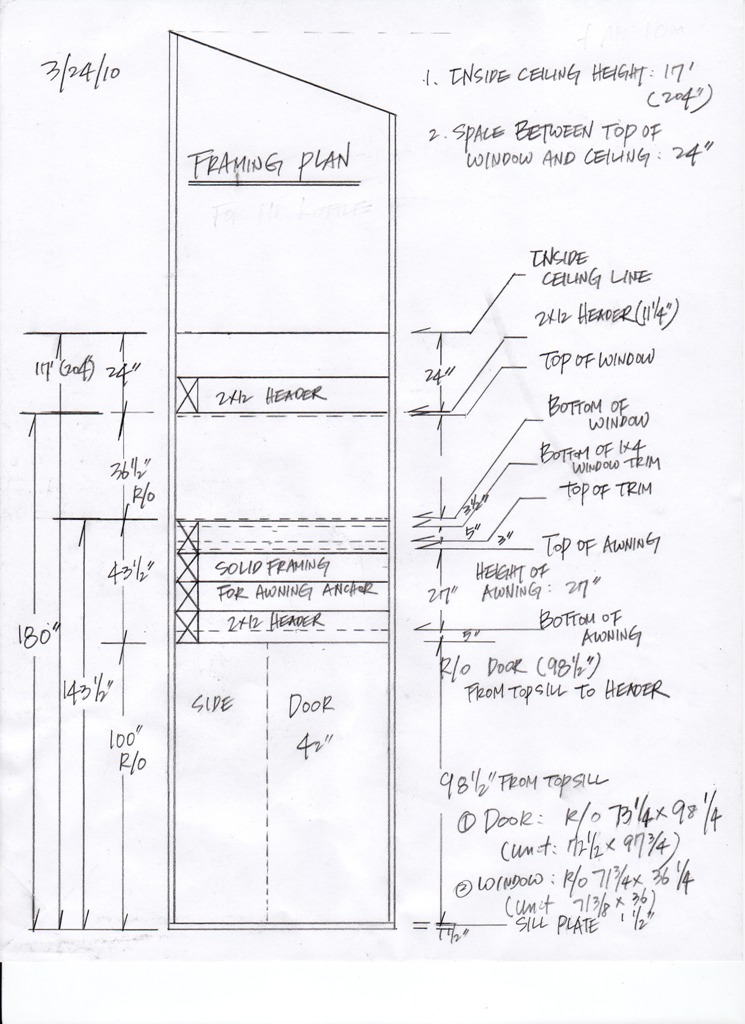 3/24/10
FRAMING PLAN
1. INSIDE CEILING HEIGHT: 17'
(204")
2. SPACE BETWEEN TOP OF
WINDOW AND CEILING: 24"
INSIDE
CEILING LINE
2X12 HEADER (11 1/4")
TOP OF WINDOW
BOTTOM OF
WINDOW
BOTTOM OF 1X4
WINDOW TRIM
TOP OF TRIM
TOP OF AWNING
HEIGHT OF
AWNING: 27"
BOTTOM OF
AWNING
24"
3 1/2"
5"
3"
27"
5"
R/O DOOR (98 1/2")
FROM TOP SILL TO HEADER
17' (204")
24"
36 1/2"
R/O
43 1/2"
180"
143 1/2"
100"
R/O
2X12 HEADER
SOLID FRAMING
FOR AWNING ANCHOR
2X12 HEADER
SIDE
DOOR
42"
98 1/2" FROM TOP SILL
① DOOR: R/O 73 1/4 X 98 1/4
(UNIT: 72 1/2 X 97 3/4)
② WINDOW: R/O 71 3/4 X 36 1/4
(UNIT 71 3/8 X 36)
SILL PLATE 1 1/2"
1 1/2"